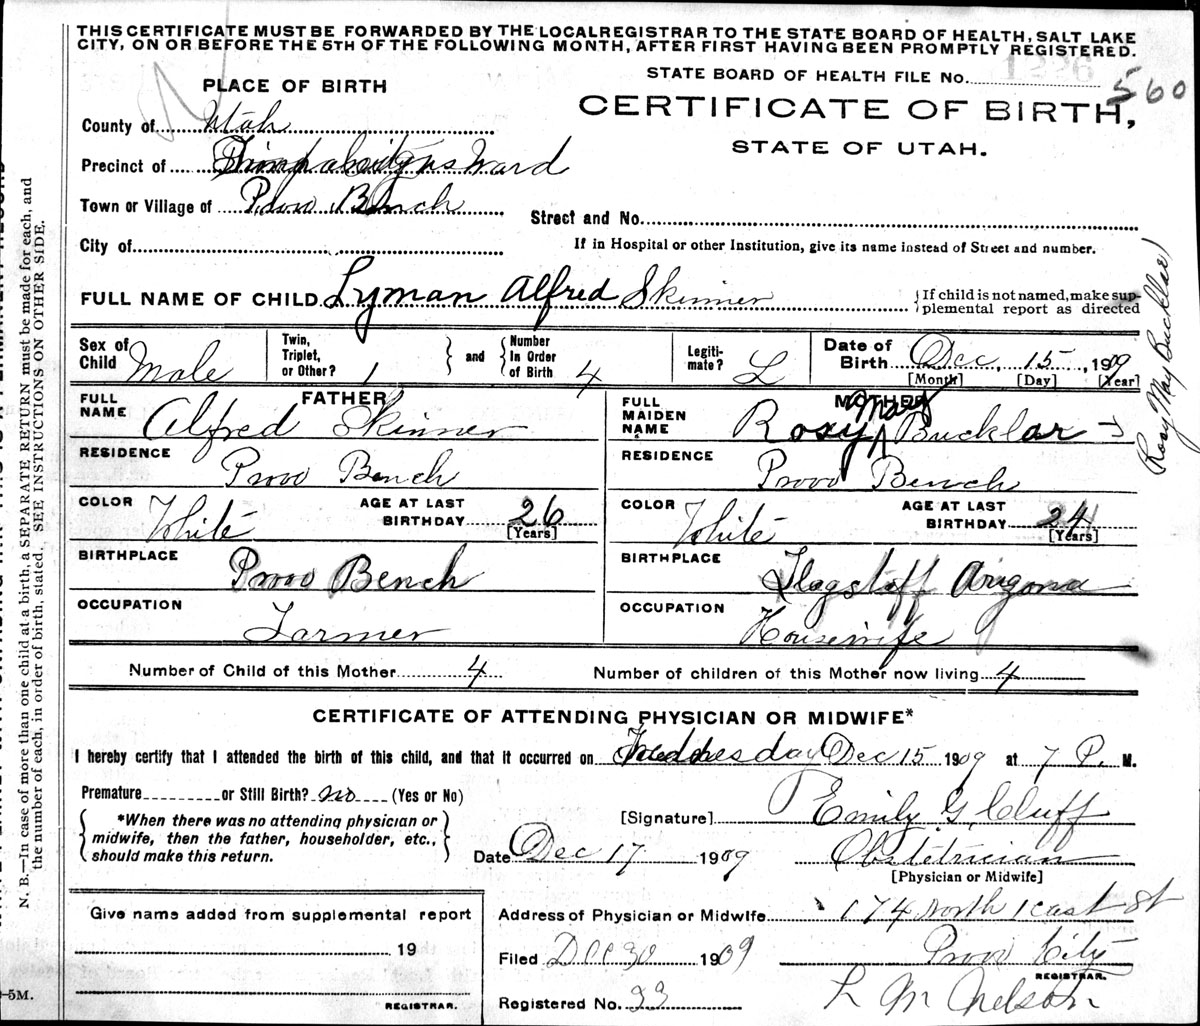 THIS CERTIFICATE MUST BE FORWARDED BY THE LOCAL REGISTRAR TO THE STATE BOARD OF HEALTH, SALT LAKE
CITY, ON OR BEFORE THE 5TH OF THE FOLLOWING MONTH, AFTER FIRST HAVING BEEN PROMPTLY REGISTERED.
STATE BOARD OF HEALTH FILE No. 1226 560
PLACE OF BIRTH
CERTIFICATE OF BIRTH,
STATE OF UTAH.
County of Utah
Precinct of Ward
Town or Village of Provo Bench
Street and No.
City of
If in Hospital or other Institution, give its name instead of Street and number.
FULL NAME OF CHILD Lyman Alfred Skinner
{If child is not named, make supplemental report as directed
Sex of Child Male
Twin, Triplet, or Other? 1 } and { Number In Order of Birth 4
Legitimate? L
Date of Birth Dec, 15, 1909
[Month] [Day] [Year]
FATHER
FULL NAME Alfred Skinner
RESIDENCE Provo Bench
COLOR White
AGE AT LAST BIRTHDAY 26
[Years]
BIRTHPLACE Provo Bench
OCCUPATION Farmer
MOTHER
FULL MAIDEN NAME Rosy May Bucklar
RESIDENCE Provo Bench
COLOR White
AGE AT LAST BIRTHDAY 24
[Years]
BIRTHPLACE Flagstaff Arizona
OCCUPATION Housewife
Rosy May Bucklar
Number of Child of this Mother 4
Number of children of this Mother now living 4
CERTIFICATE OF ATTENDING PHYSICIAN OR MIDWIFE*
I hereby certify that I attended the birth of this child, and that it occurred on Wednesday Dec 15 1909 at 7 P. M.
Premature or Still Birth? no (Yes or No)
{*When there was no attending physician or
midwife, then the father, householder, etc.,
should make this return.}
[Signature] Emily G. Cluff
Date Dec 17 1909 Obstetrician
[Physician or Midwife]
Give name added from supplemental report
19
REGISTRAR.
Address of Physician or Midwife 174 North 1 East St
Provo City
Filed Dec 30 1909
REGISTRAR.
Registered No. 33 L M Nelson
N. B.—In case of more than one child at a birth, a SEPARATE RETURN must be made for each, and
the number of each, in order of birth, stated. SEE INSTRUCTIONS ON OTHER SIDE.
-5M.